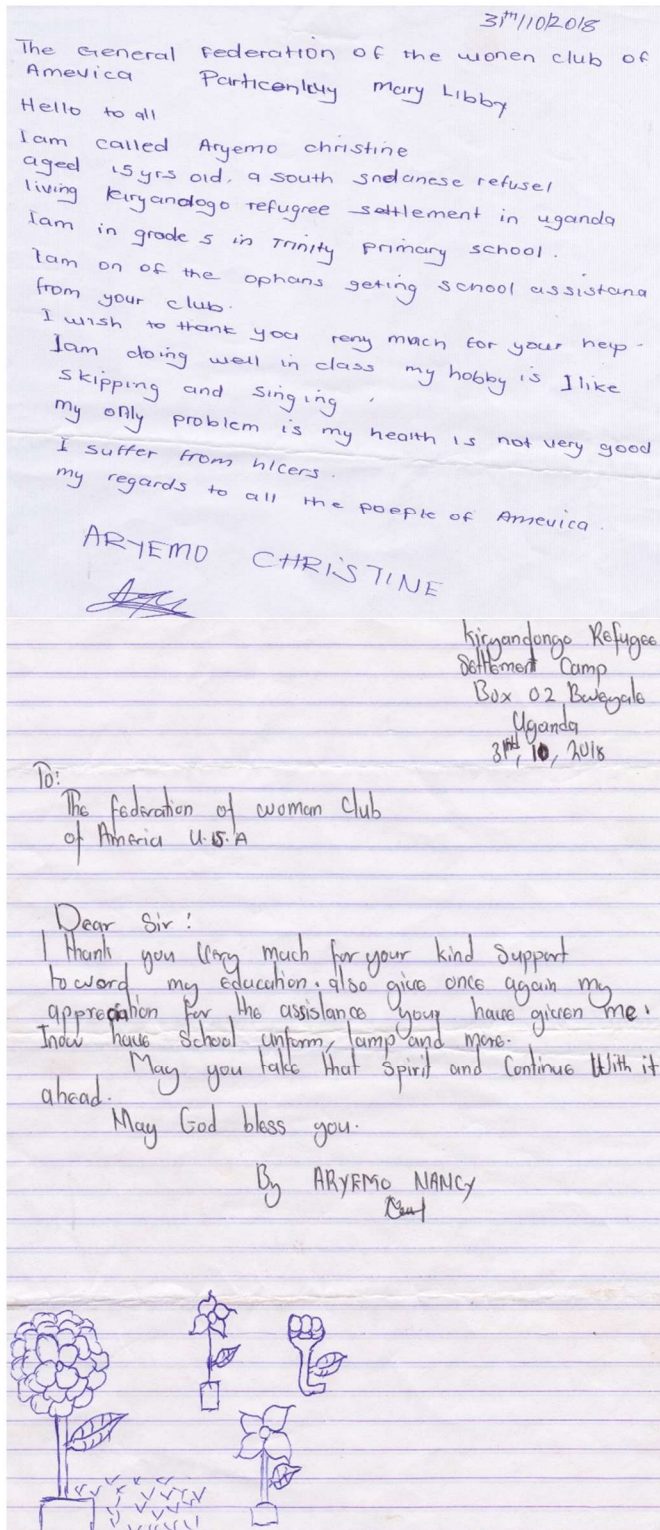 31th/10/2018
The General Federation of the wonen club of
Amevica Particenluy Mary Libby
Hello to all
Iam called Aryemo christine
aged 15yrs old. a south sndanese refusel
living kiryandogo refugree settlement in uganda
Iam in grade 5 in Trinity primary school.
Iam on of the ophans geting school assistana
from your club.
I wish to thank you reny much for your hep.
Iam doing well in class my hobby is I like
skipping and singing.
my only problem is my health is not very good
I suffer from hlcers.
my regards to all the poeple of Amevica.
ARYEMO CHRISTINE
Kiryandongo Refugee
Settlement Camp
Box 02 Bweyale
Uganda
31nd, 10, 2018
To:
The federation of woman club
of America U.S.A
Dear Sir:
I thank you very much for your kind support
to word my education. also give once again my
appreciation for the assistance your have given me.
Inow have school unform, lamp and more.
May you take that spirit and Continue With it
ahead.
May God bless you.
By ARYEMO NANCY